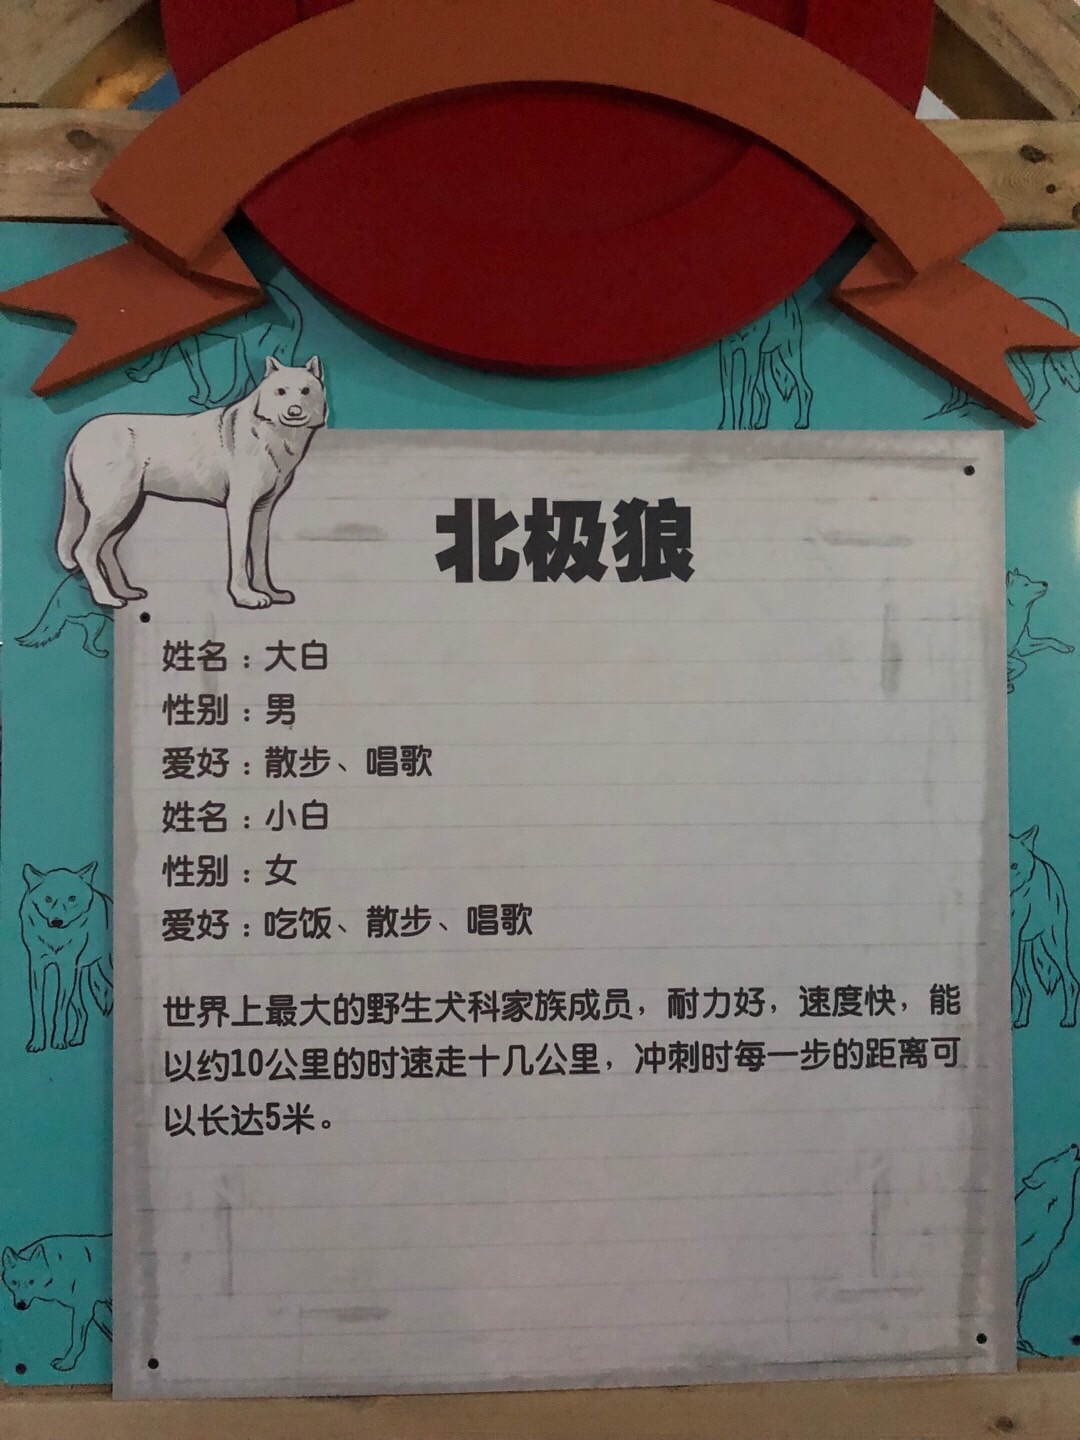 北极狼
姓名：大白
性别：男
爱好：散步、唱歌
姓名：小白
性别：女
爱好：吃饭、散步、唱歌
世界上最大的野生犬科家族成员，耐力好，速度快，能
以约10公里的时速走十几公里，冲刺时每一步的距离可
以长达5米。